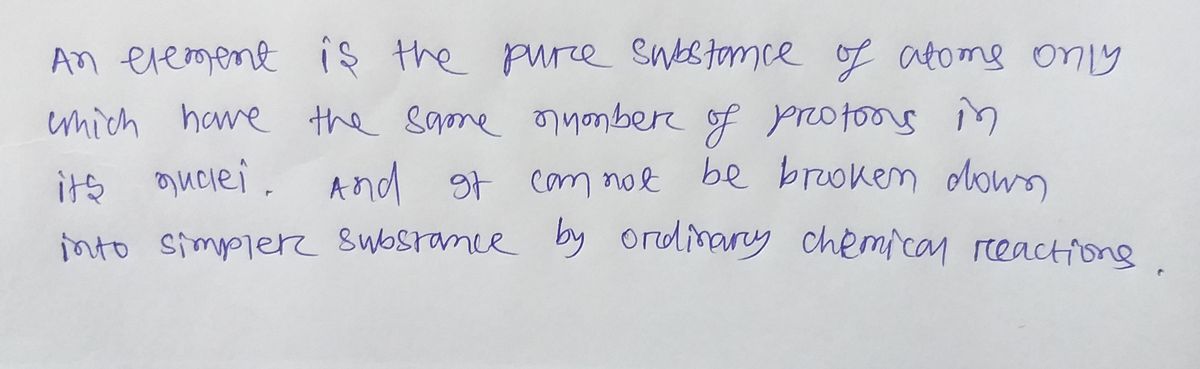 An element is the pure substance of atoms only
which have the same number of protons in
its nuclei. And It can not be broken down
into simpler substance by ordinary chemical reactions.